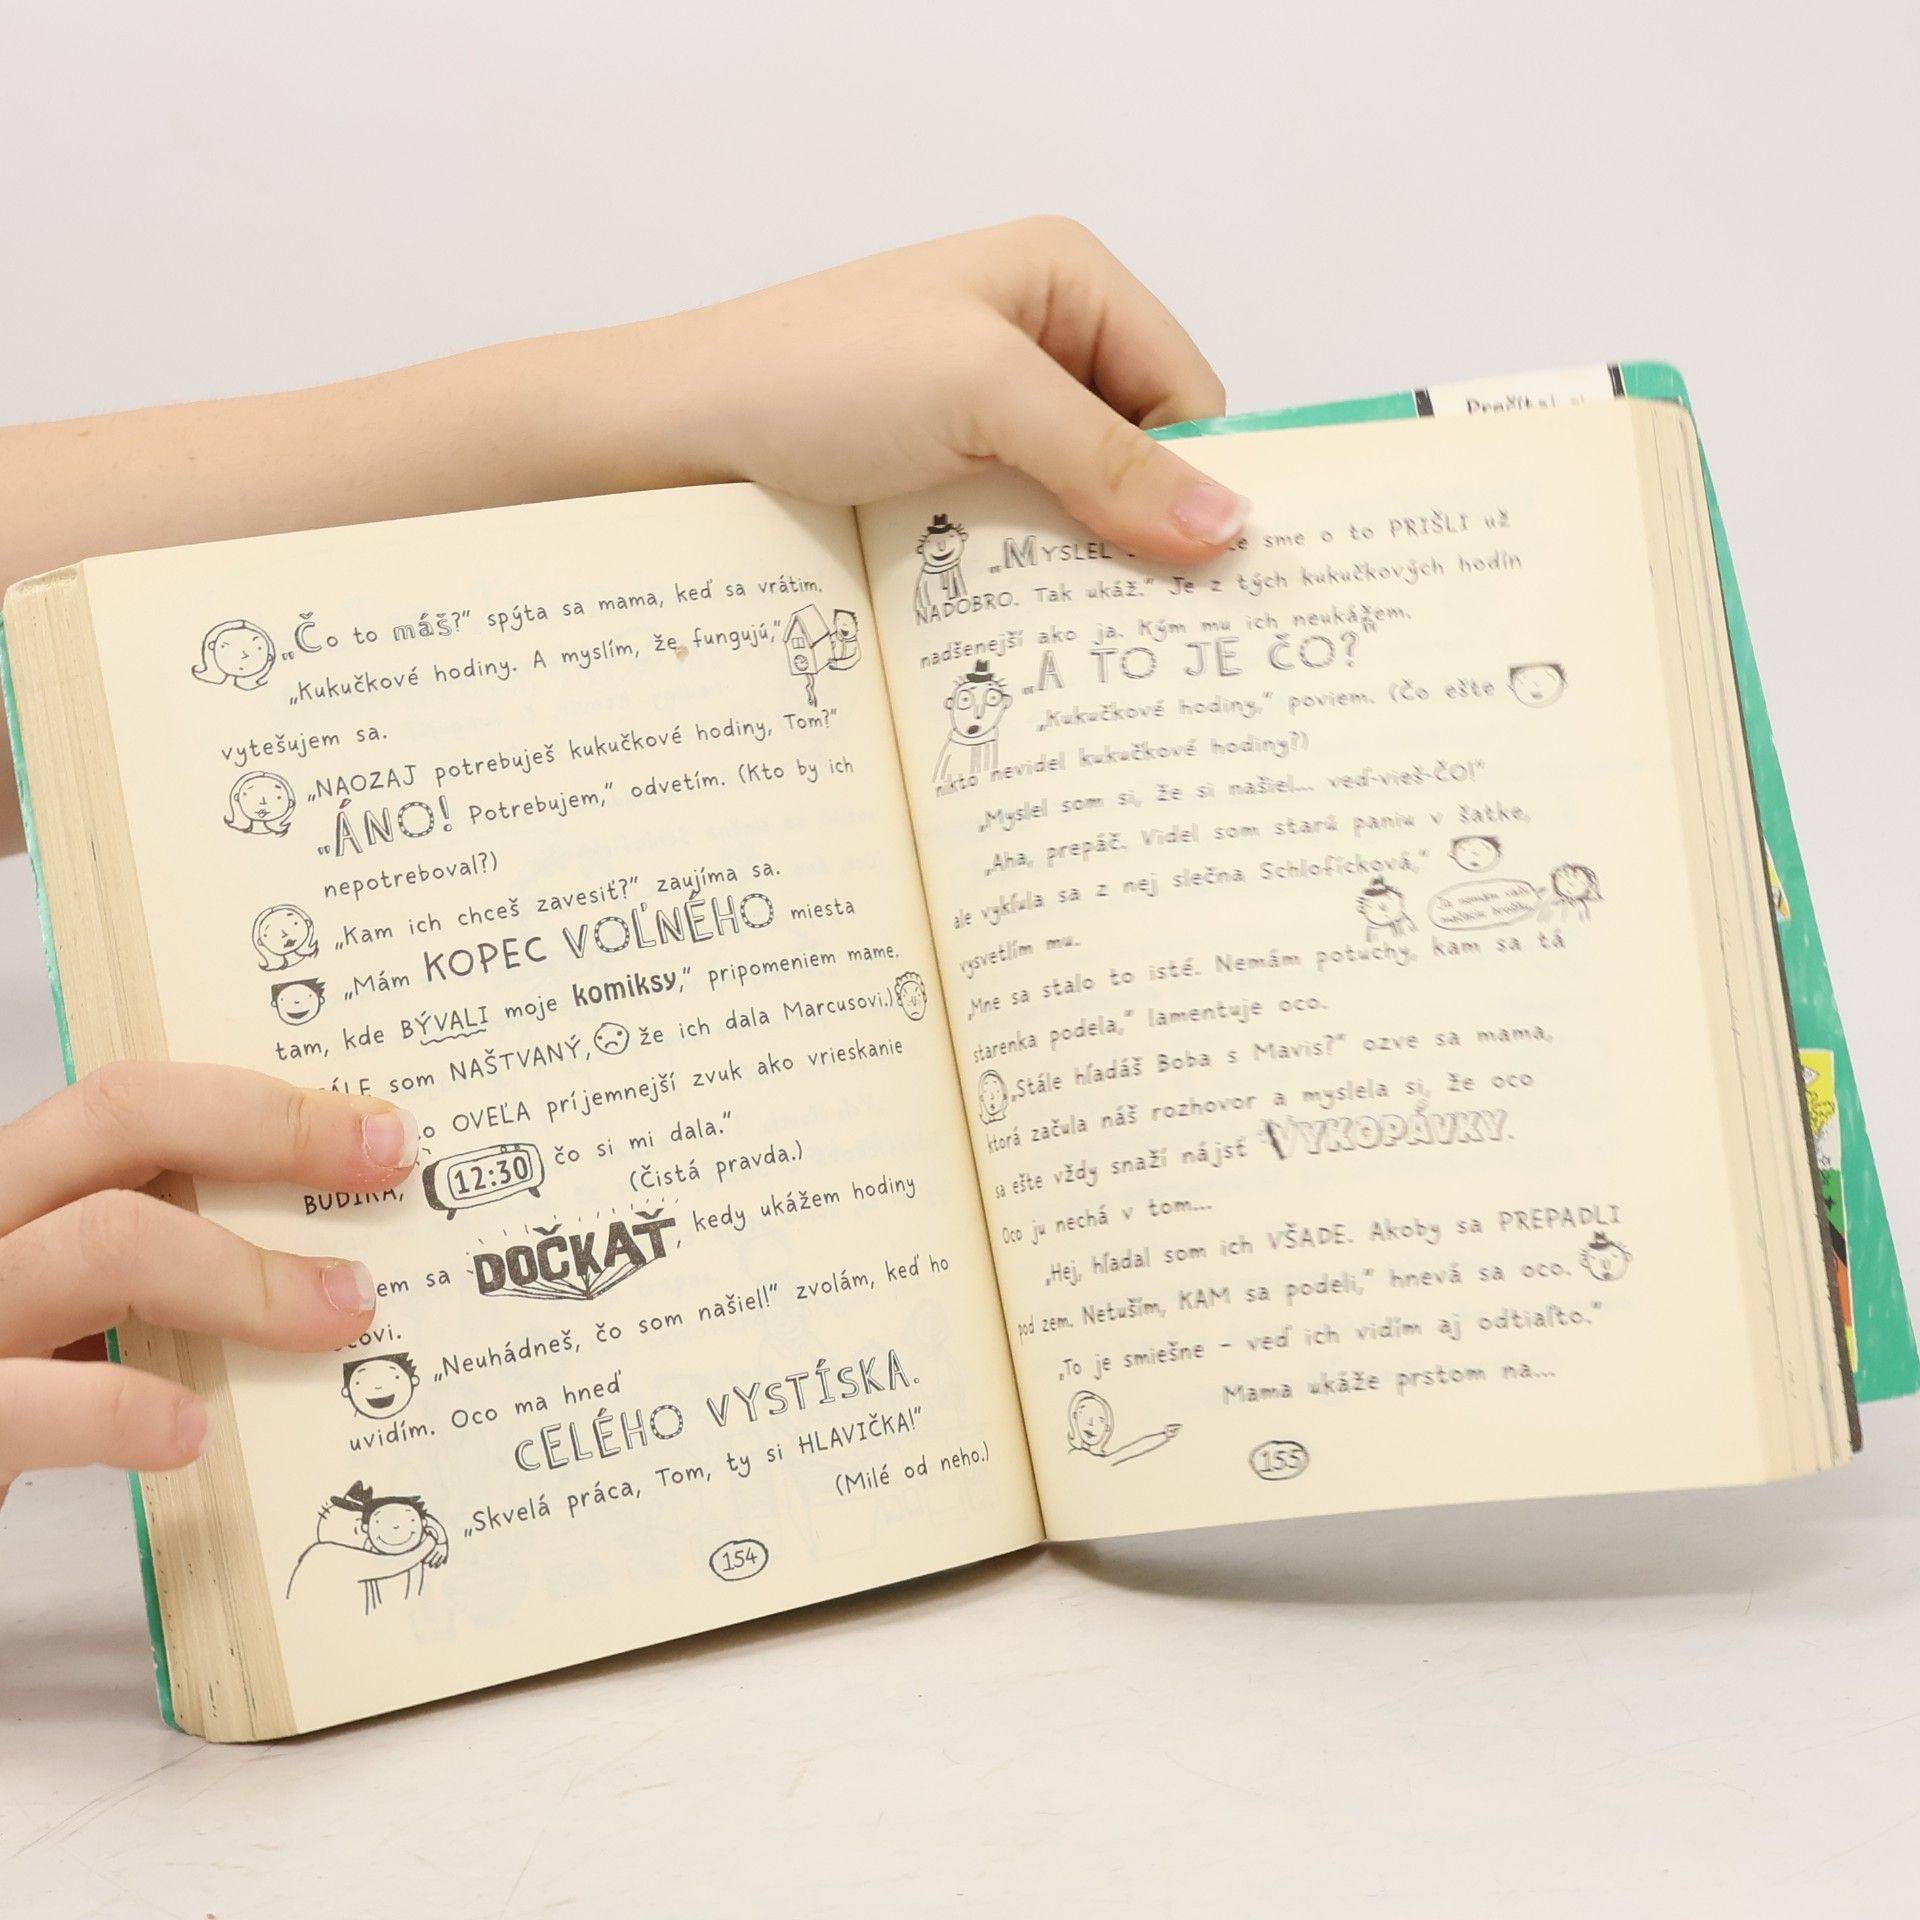 „Čo to máš?" spýta sa mama, keď sa vrátim.
„Kukučkové hodiny. A myslím, že fungujú,"
vytešujem sa.
„NAOZAJ potrebuješ kukučkové hodiny, Tom?"
„ÁNO! Potrebujem," odvetím. (Kto by ich
nepotreboval?)
„Kam ich chceš zavesiť?" zaujíma sa.
„Mám KOPEC VOĽNÉHO miesta
tam, kde BÝVALI moje komiksy," pripomeniem mame.
som NAŠTVANÝ, že ich dala Marcusovi.)
OVEĽA príjemnejší zvuk ako vrieskanie
BUDÍKA, 12:30 čo si mi dala."
(Čistá pravda.)
sa DOČKAŤ, kedy ukážem hodiny
„Neuhádneš, čo som našiel!" zvolám, keď ho
uvidím. Oco ma hneď
CELÉHO VYSTÍSKA.
„Skvelá práca, Tom, ty si HLAVIČKA!"
(Milé od neho.)
154
„MYSLEL sme o to PRIŠLI už
NADOBRO. Tak ukáž." Je z tých kukučkových hodín
nadšenejší ako ja. Kým mu ich neukážem.
„A TO JE ČO?"
„Kukučkové hodiny," poviem. (Čo ešte
nikto nevidel kukučkové hodiny?)
„Myslel som si, že si našiel... veď-vieš-ČO!"
„Aha, prepáč. Videl som starú paniu v šatke,
ale vykľula sa z nej slečna Schlofická,"
vysvetlím mu.
„Mne sa stalo to isté. Nemám potuchy, kam sa tá
starenka podela," lamentuje oco.
„Stále hľadáš Boba s Mavis?" ozve sa mama,
ktorá začula náš rozhovor a myslela si, že oco
sa ešte vždy snaží nájsť VYKOPÁVKY.
Oco ju nechá v tom...
„Hej, hľadal som ich VŠADE. Akoby sa PREPADLI
pod zem. Netuším, KAM sa podeli," hnevá sa oco.
„To je smiešne – veď ich vidím aj odtiaľto."
Mama ukáže prstom na...
155